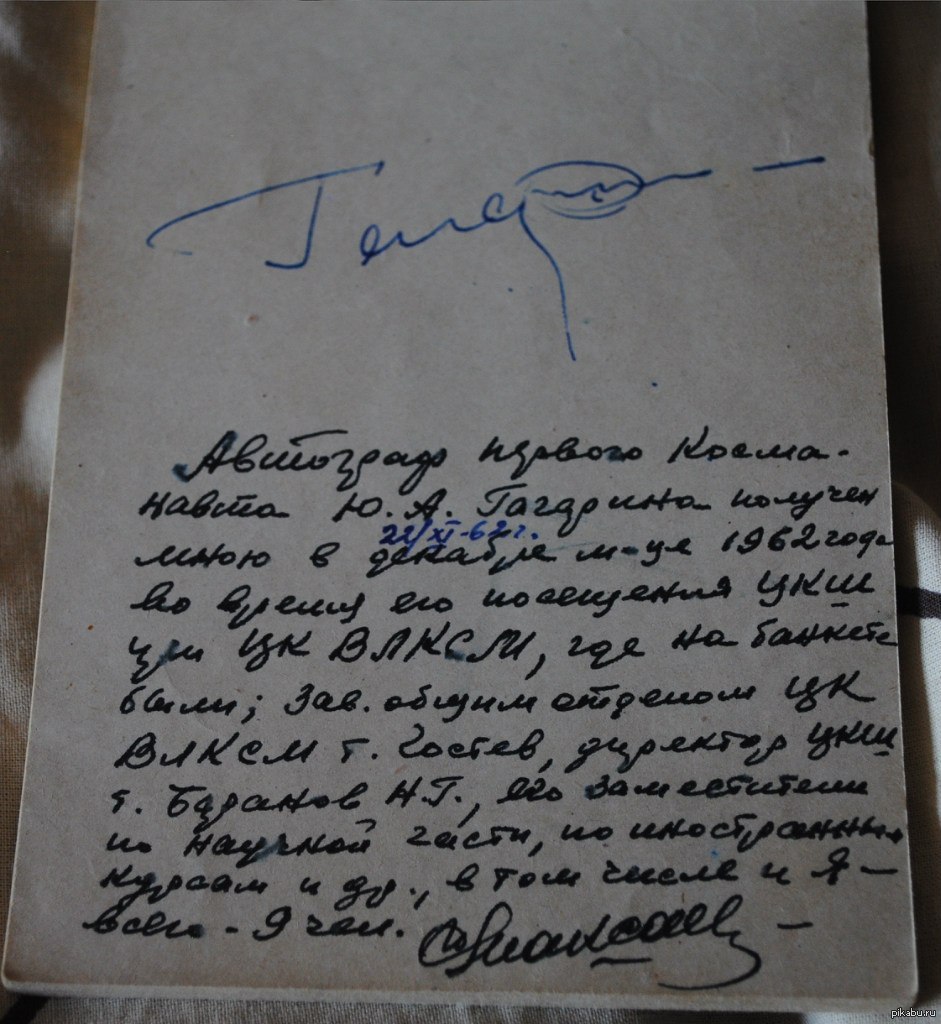 Гагарин
Автограф первого Косма-
навта Ю. А. Гагарина получен
22/XI-62 г.
мною в декабре м-це 1962 года
во время его посещения ЦКШ
при ЦК ВЛКСМ, где на банкете
были; Зав. общим отделом ЦК
ВЛКСМ т. Гостев, директор ЦКШ
т. Буранов Н.Г., его заместители
по научной части, по иностранным
курсам и др., в том числе и я —
всего - 9 чел.
pikabu.ru